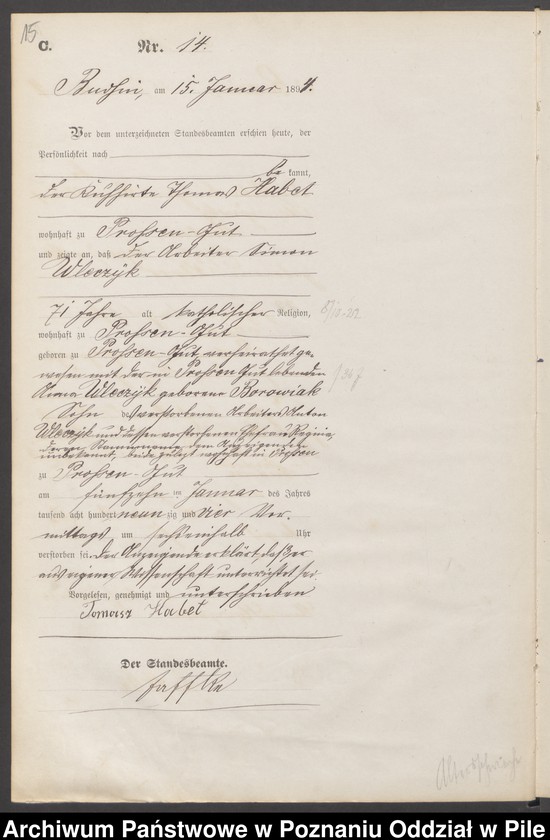 15
C.
Nr. 14.
Budsin, am 15. Januar 1894.
Vor dem unterzeichneten Standesbeamten erschien heute, der
Persönlichkeit nach
be kannt,
der Kuhhirte Thomas Habet
wohnhaft zu Prossen-Gut
und zeigte an, daß der Arbeiter Simon
Wleczyk
71 Jahre alt katholischer Religion,
wohnhaft zu Prossen-Gut
geboren zu Prossen-Gut, verheirathet ge-
wesen mit der in Prossen Gut lebenden
Anna Wleczyk geborene Borowiak
Sohn des verstorbenen Arbeiters Anton
Wleczyk und dessen verstorbenen Ehefrau Regina,
deren Stammname dem Anzeigenden
unbekannt, beide zuletzt wohnhaft in Prossen
zu Prossen-Gut
am fünfzehn ten Januar des Jahres
tausend acht hundert neun zig und vier Vor-
mittags um sechseinhalb Uhr
verstorben sei. Der Anzeigende erklärt, daß er
aus eigener Wissenschaft unterrichtet sei.
Vorgelesen, genehmigt und unterschrieben
Tomasz Habet
Der Standesbeamte.
Jafftke
Altersschwäche
Archiwum Państwowe w Poznaniu Oddział w Pile